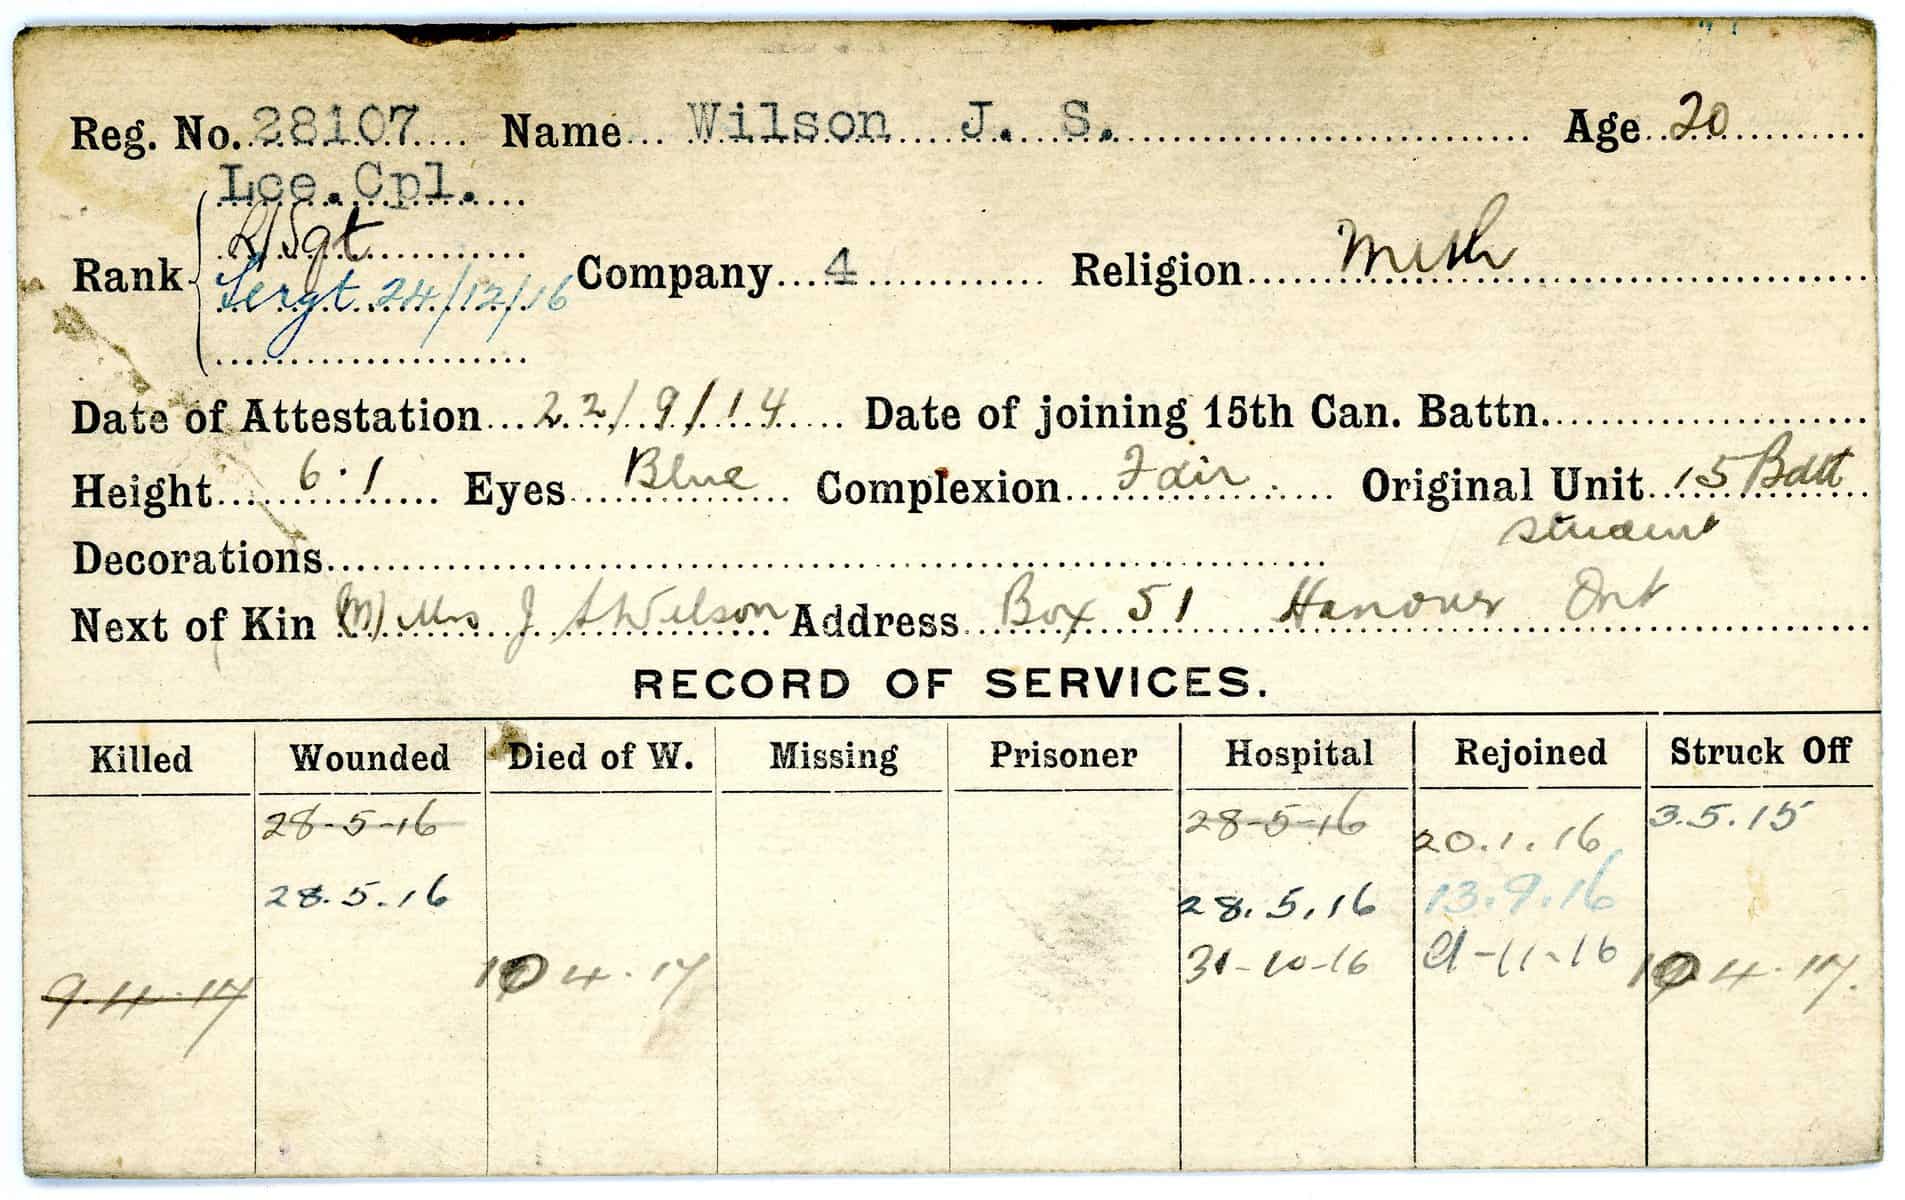 Reg. No. 28107 Name Wilson J. S. Age 20
Lce. Cpl.
L/Sgt
Rank Sergt 24/12/16 Company 4 Religion Meth
Date of Attestation 22/9/14 Date of joining 15th Can. Battn.
Height 6.1 Eyes Blue Complexion Fair Original Unit 15 Batt
student
Decorations
Next of Kin (M) Mrs J S Wilson Address Box 51 Hanover Ont
RECORD OF SERVICES.
Killed Wounded Died of W. Missing Prisoner Hospital Rejoined Struck Off
28-5-16 28-5-16 20.1.16 3.5.15
28.5.16 28.5.16 13.9.16
9.4.17 10 4.17 31-10-16 21-11-16 10 4.17.